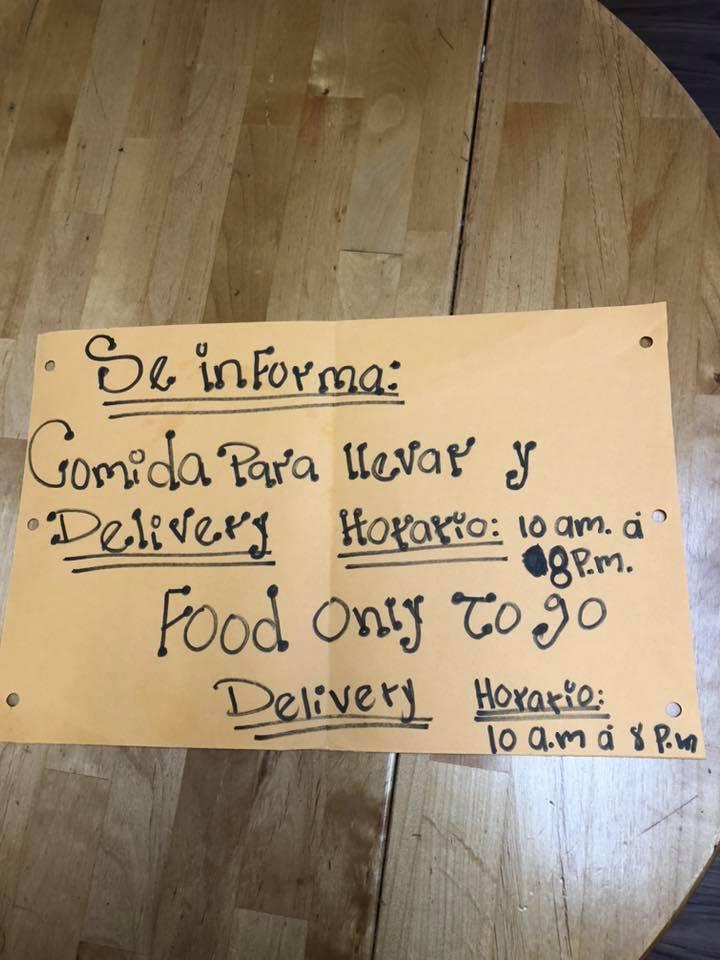 Se informa:
Comida Para llevar y
Delivery Horario: 10 am. a
8 P.m.
Food Only To go
Delivery Horario:
10 a.m a 8 P.m